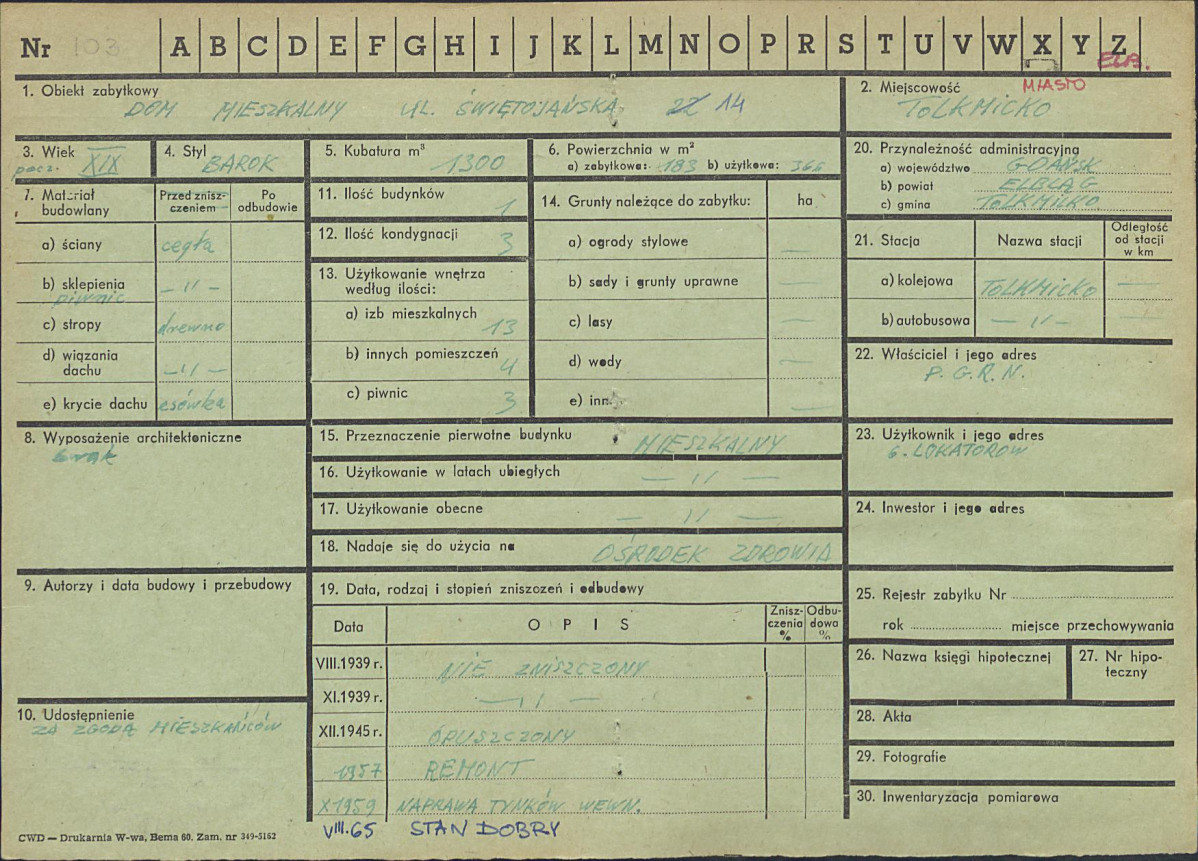 Nr 103 A B C D E F G H I J K L M N O P R S T U V W X Y Z
ELB.
MIASTO
1. Obiekt zabytkowy
DOM MIESZKALNY UL. ŚWIĘTOJAŃSKA 14
2. Miejscowość
TOLKMICKO
3. Wiek
pocz. XIX
4. Styl
BAROK
5. Kubatura m³
1300
6. Powierzchnia w m²
a) zabytkowa: 183 b) użytkowa: 366
20. Przynależność administracyjna
a) województwo GDAŃSK
b) powiat ELBLĄG
c) gmina TOLKMICKO
7. Materiał budowlany
Przed zniszczeniem
Po odbudowie
a) ściany cegła
b) sklepienia — ״ —
piwnic
c) stropy drewno
d) wiązania dachu — ״ —
e) krycie dachu esówka
11. Ilość budynków
1
12. Ilość kondygnacji
3
13. Użytkowanie wnętrza
według ilości:
a) izb mieszkalnych
13
b) innych pomieszczeń
4
c) piwnic
3
14. Grunty należące do zabytku: ha
a) ogrody stylowe —
b) sady i grunty uprawne —
c) lasy —
d) wody —
e) inne —
21. Stacja Nazwa stacji Odległość od stacji w km
a) kolejowa TOLKMICKO —
b) autobusowa — ״ — —
22. Właściciel i jego adres
P. G. R. N.
8. Wyposażenie architektoniczne
brak
15. Przeznaczenie pierwotne budynku
MIESZKALNY
16. Użytkowanie w latach ubiegłych
— ״ —
17. Użytkowanie obecne
— ״ —
18. Nadaje się do użycia na
OŚRODEK ZDROWIA
23. Użytkownik i jego adres
6. LOKATORÓW
24. Inwestor i jego adres
9. Autorzy i data budowy i przebudowy
19. Data, rodzaj i stopień zniszczeń i odbudowy
Data OPIS Zniszczenia % Odbudowa %
VIII.1939 r. NIE ZNISZCZONY
XI.1939 r. — ״ —
XII.1945 r. OPUSZCZONY
1957 REMONT
X 1959 NAPRAWA TYNKÓW WEWN.
VIII.65 STAN DOBRY
25. Rejestr zabytku Nr
rok miejsce przechowywania
26. Nazwa księgi hipotecznej
27. Nr hipoteczny
10. Udostępnienie
ZA ZGODĄ MIESZKAŃCÓW
28. Akta
29. Fotografie
30. Inwentaryzacja pomiarowa
CWD — Drukarnia W-wa, Bema 60. Zam. nr 349-5162